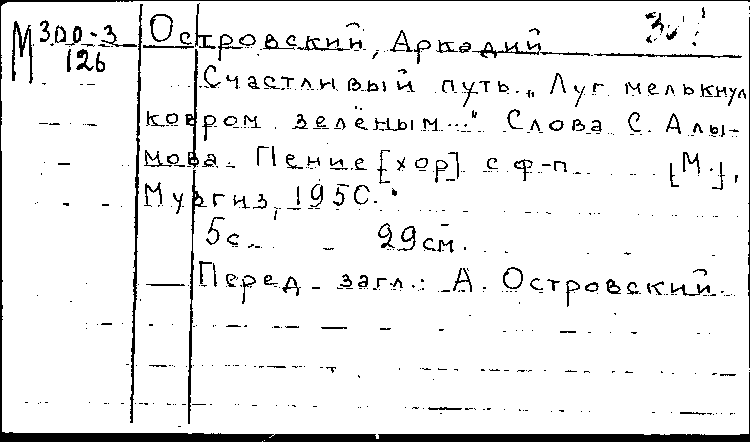 М 300-3
126
Островский, Аркадий
Счастливый путь. „Луг мелькнул
ковром зелёным..." Слова С. Алы-
мова. Пение [хор] с ф-п. [М.],
Музгиз, 1950.
5с. 29см.
Перед загл.: А. Островский.